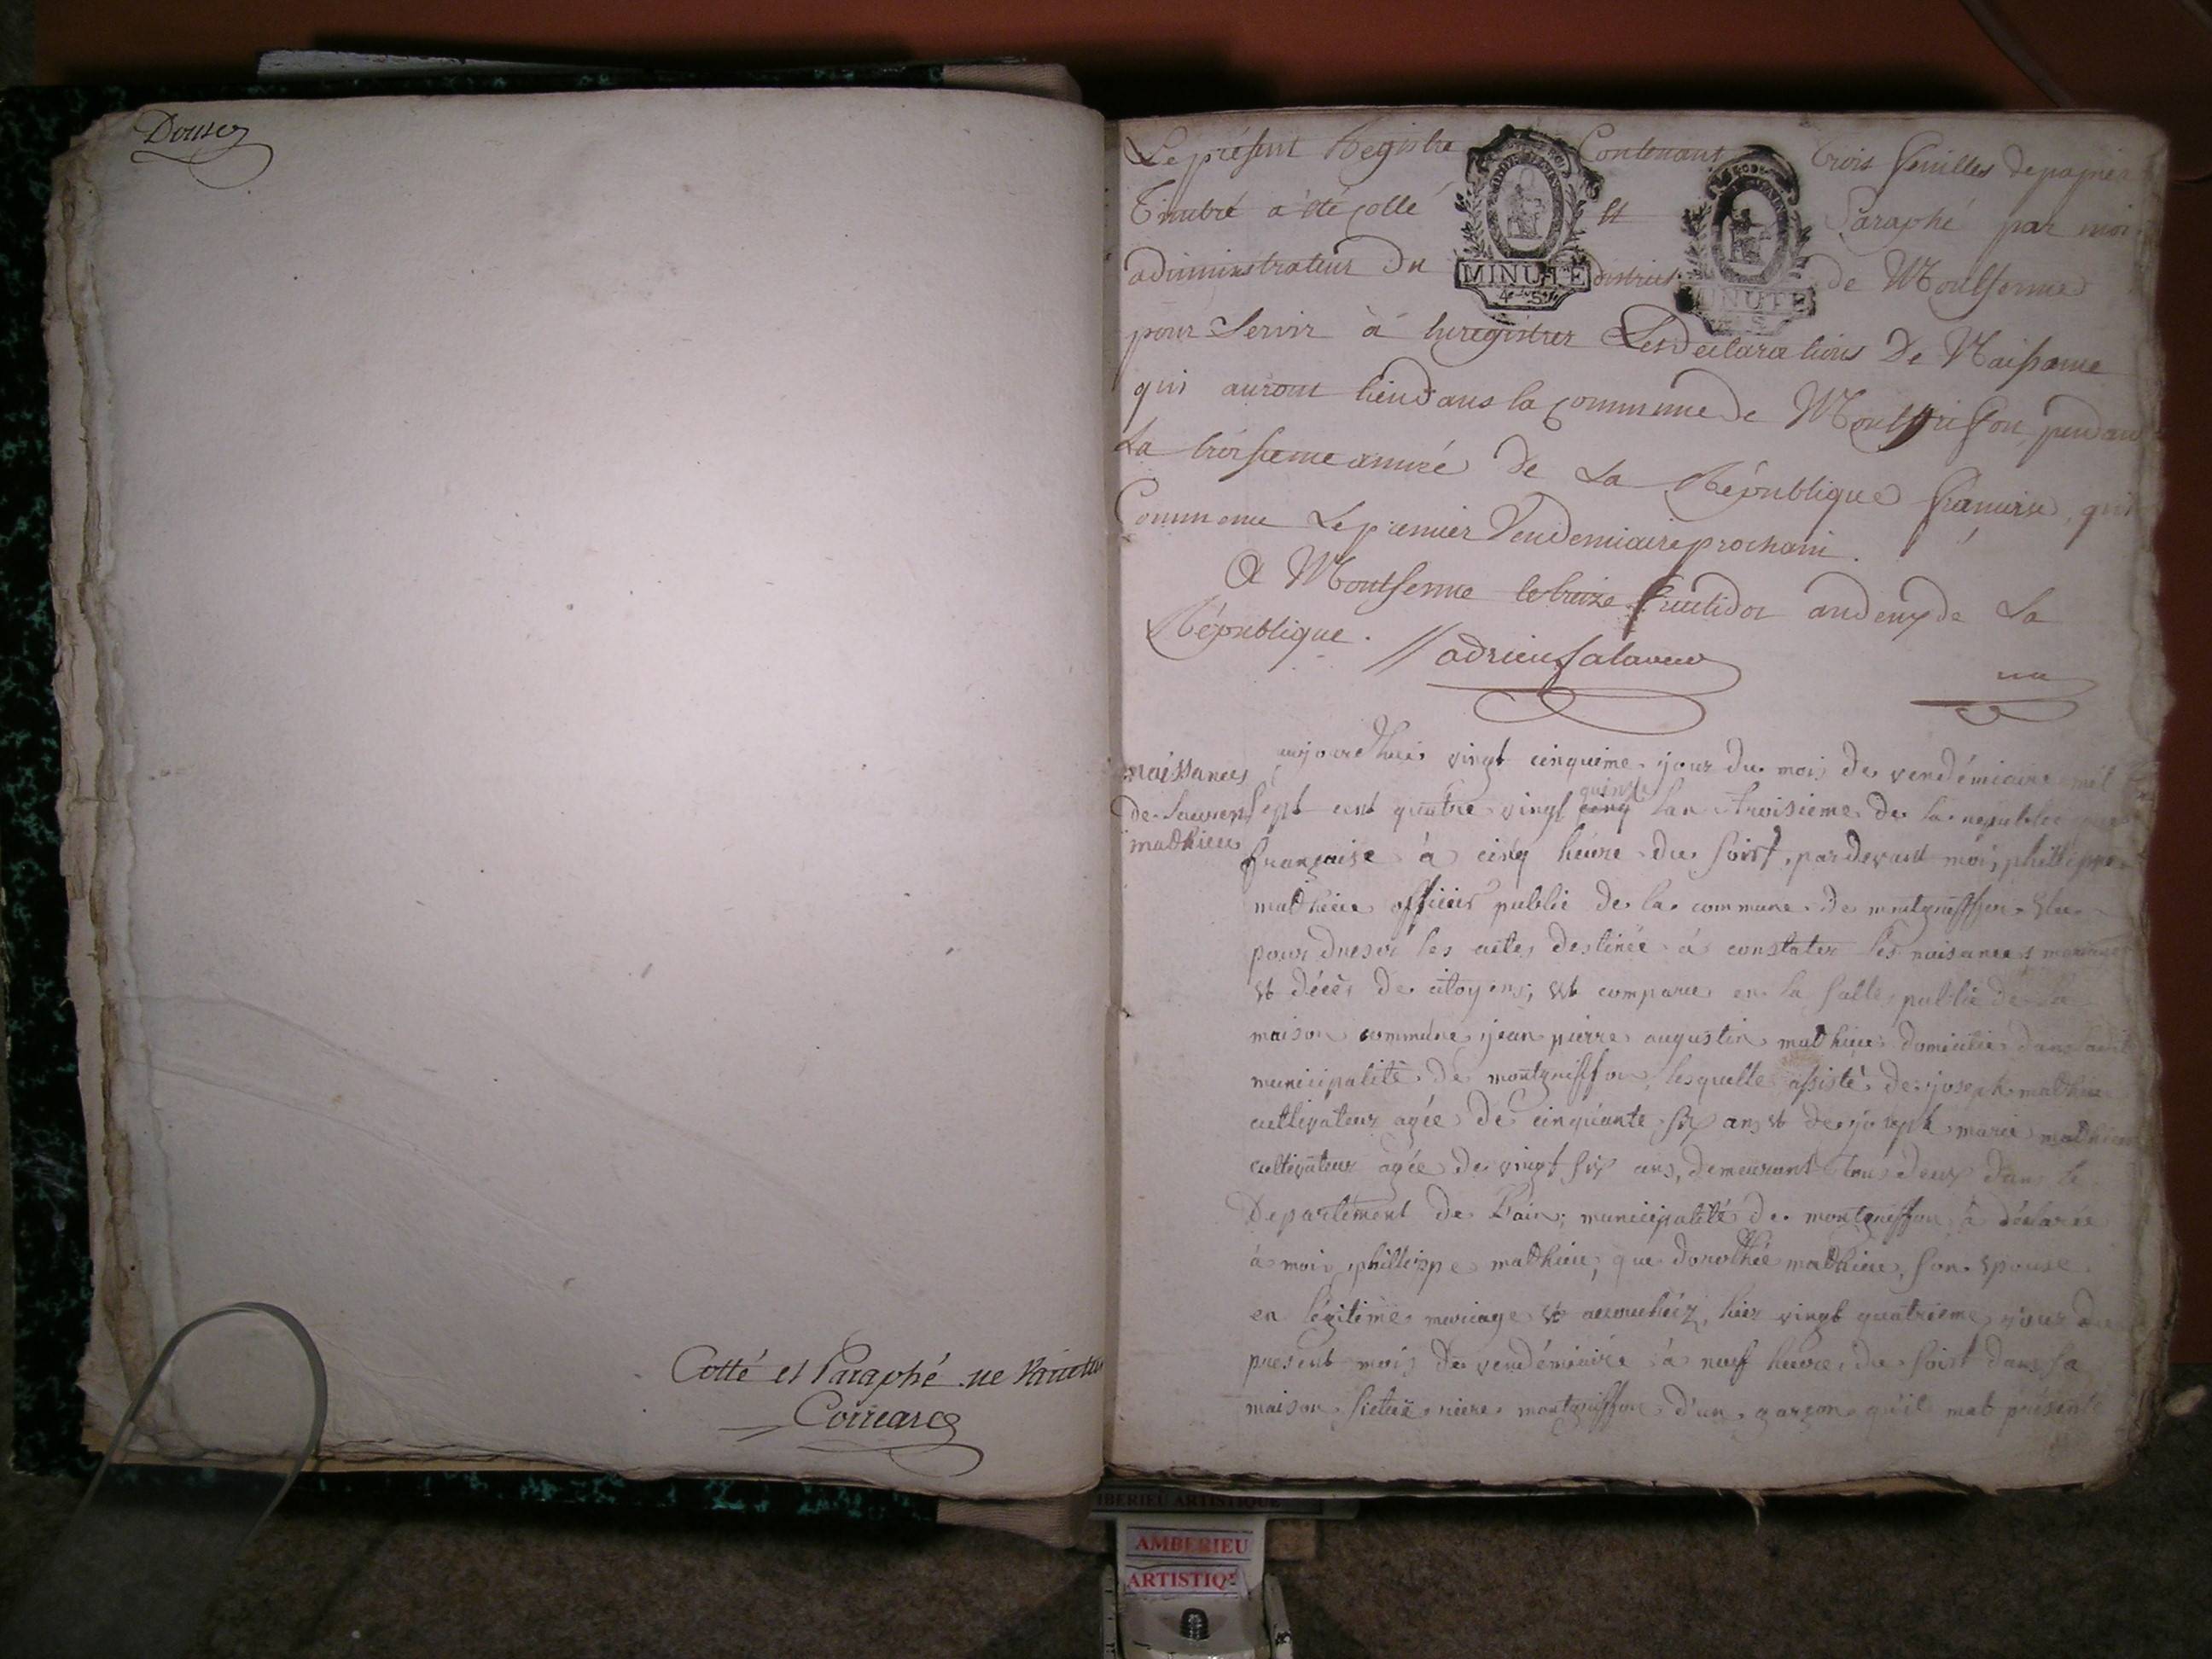 Douze
Cotté et Paraphé ne Varietur
Correard
Le présent Registre Contenant trois feuilles de papier
Timbré a été cotté et Paraphé par moi
administrateur du district de Montferme
MINUTE
4 S
MINUTE
pour Servir à Enregistrer Les declarations De Naissance
qui auront lieu dans la commune de Montgriffon, pendant
La troisieme année de La République francaise, qui
Commence Le premier Vendemiaire prochain.
A Montferme le treize fructidor an deux de La
République. adrien
naissance
De
mathieu
aujourdhui vingt cinquieme jour du mois de vendémiaire mil
sept cent quatre vingt quinze lan troisieme de la republique
française à cinq heure du soirt, pardevant moi, philippe
mathieu officier public de la commune de montgriffon elu
pour dresér les actes destinée à constater les naisances mariage
et décès de citoyens; est comparue en la salle public de la
maison commune jean pierre augustin mathieu domicilie dans
municipalité de montgriffon, lesquelle assisté de joseph mathieu
cultivateur agée de cinquante six ans et de joseph marie mathieu
cultivateur agée de vingt six ans, demeurant tous deux dans le
Departement de l'ain; municipalité de montgriffon à déclarée
à moi, philippe mathieu, que dorothée mathieu, son epouse
en légitime mariage et accouchéz, hier vingt quatrieme jour du
present mois de vendémiaire à neuf heure du soirt dans sa
maison montgriffon d'un garçon qu'il mat présenté
AMBERIEU ARTISTIQUE
AMBERIEU
ARTISTIQ